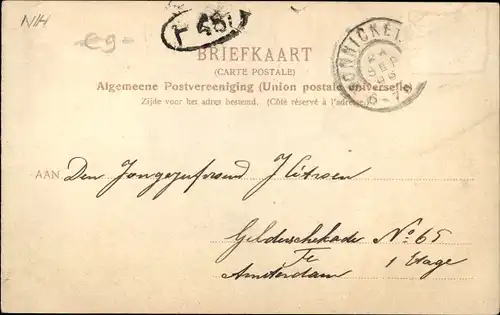 N/H
-e9-
BRIEFKAART
(CARTE POSTALE)
Algemeene Postvereeniging (Union postale universelle)
Zijde voor het adres bestemd. (Côté réservé à l'adresse.)
AAN Den
Geldersche kade No 65
Te
Amsterdam 1 Etage